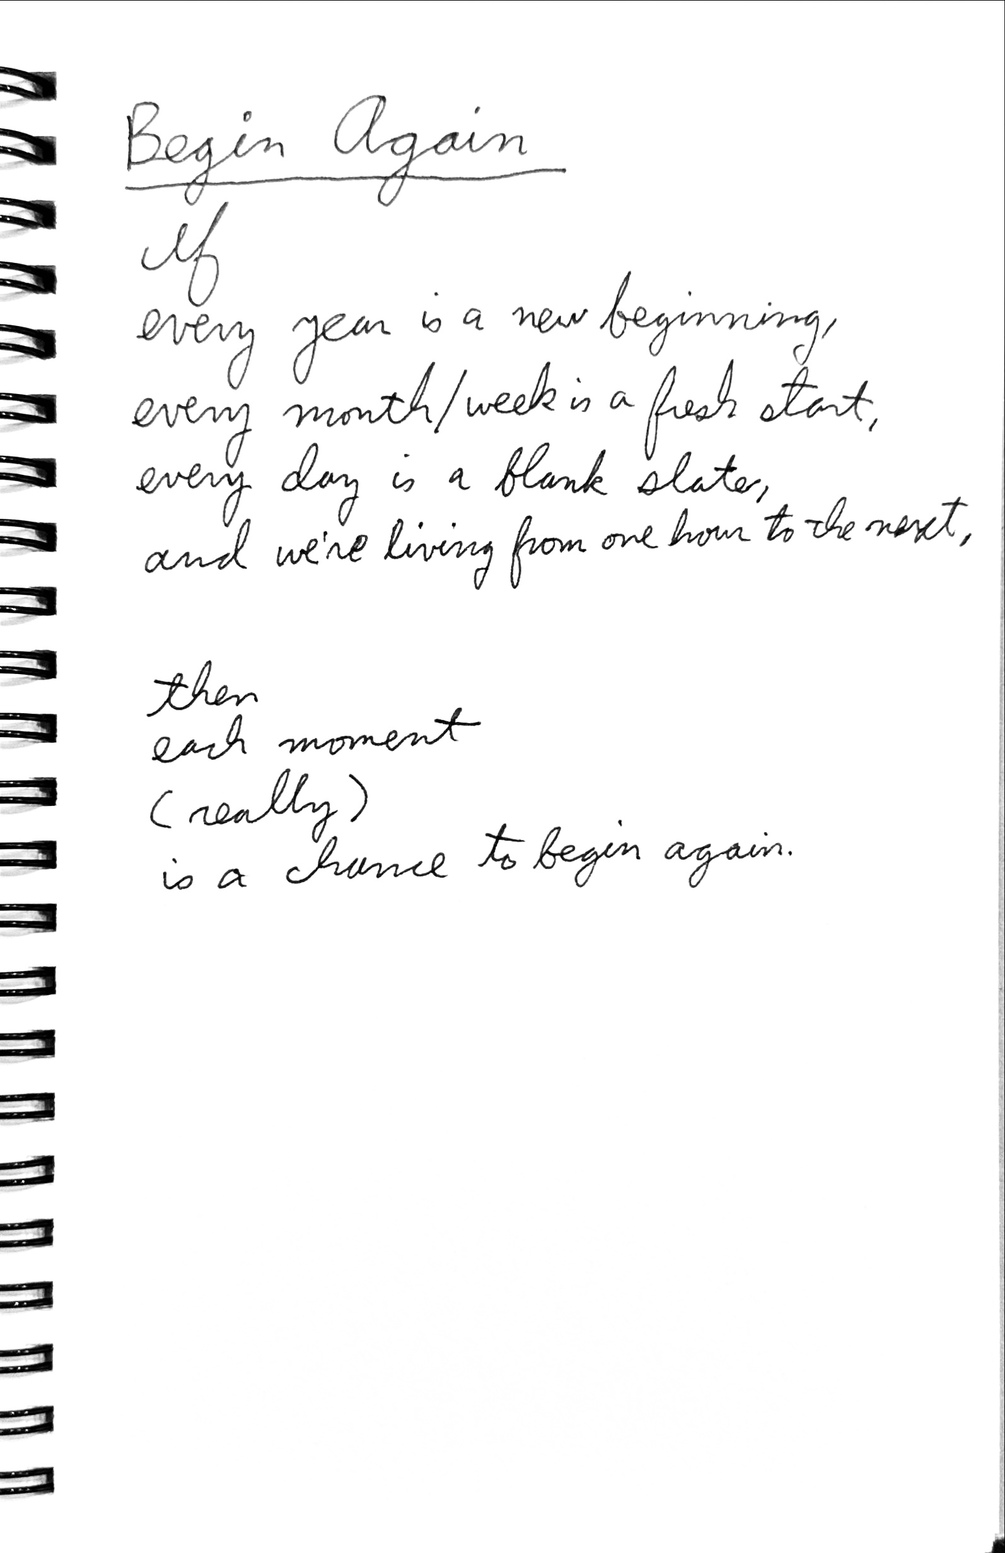 Begin Again
If
every year is a new beginning,
every month/week is a fresh start,
every day is a blank slate,
and we're living from one hour to the next,
then
each moment
(really)
is a chance to begin again.